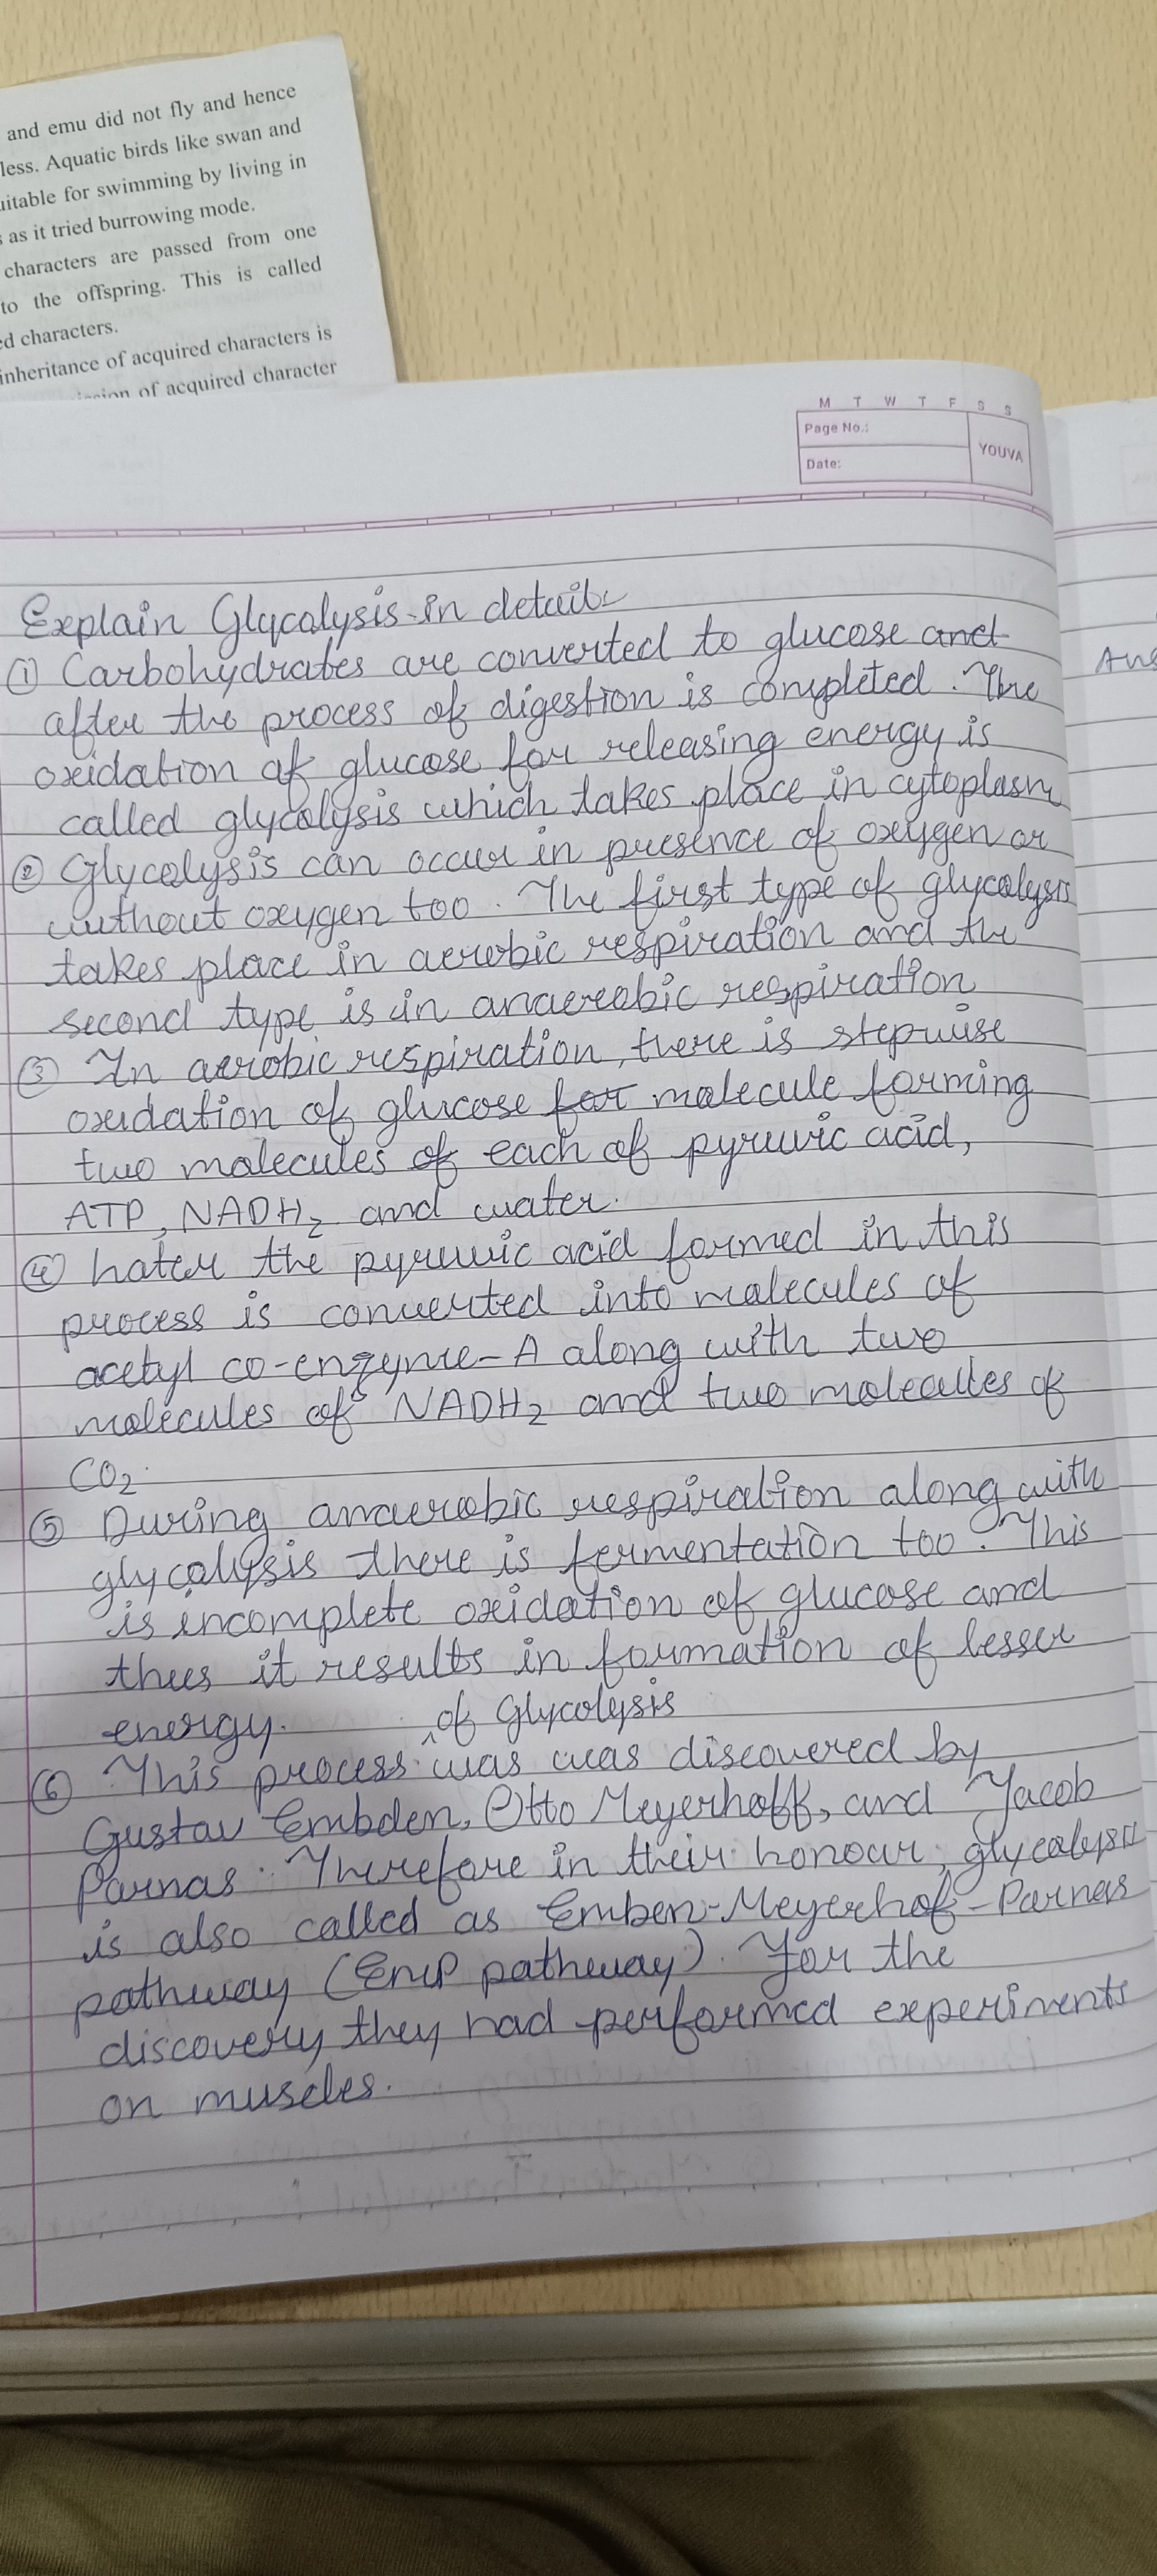 and emu did not fly and hence
less. Aquatic birds like swan and
uitable for swimming by living in
s as it tried burrowing mode.
characters are passed from one
to the offspring. This is called
ed characters.
inheritance of acquired characters is
of acquired character
M T W T F S S
Page No.:
YOUVA
Date:
Explain Glycolysis in detail:
Ans
① Carbohydrates are converted to glucose and
after the process of digestion is completed. The
oxidation of glucose for releasing energy is
called glycolysis which takes place in cytoplasm
② Glycolysis can occur in presence of oxygen or
without oxygen too. The first type of glycolysis
takes place in aerobic respiration and the
second type is in anaerobic respiration
③ In aerobic respiration, there is stepwise
oxidation of glucose for molecule forming
two molecules of each of pyruvic acid,
ATP, NADH₂ and water.
④ Later the pyruvic acid formed in this
process is converted into molecules of
acetyl co-enzyme-A along with two
molecules of NADH₂ and two molecules of
CO₂.
⑤ During anaerobic respiration along with
glycolysis there is fermentation too. This
is incomplete oxidation of glucose and
thus it results in formation of lesser
energy.
of Glycolysis
⑥ This process was was discovered by
Gustav Embden, Otto Meyerhoff, and Jacob
Parnas. Therefore in their honour, glycolysis
is also called as Emben-Meyerhof-Parnas
pathway (EMP pathway). For the
discovery they had performed experiments
on muscles.